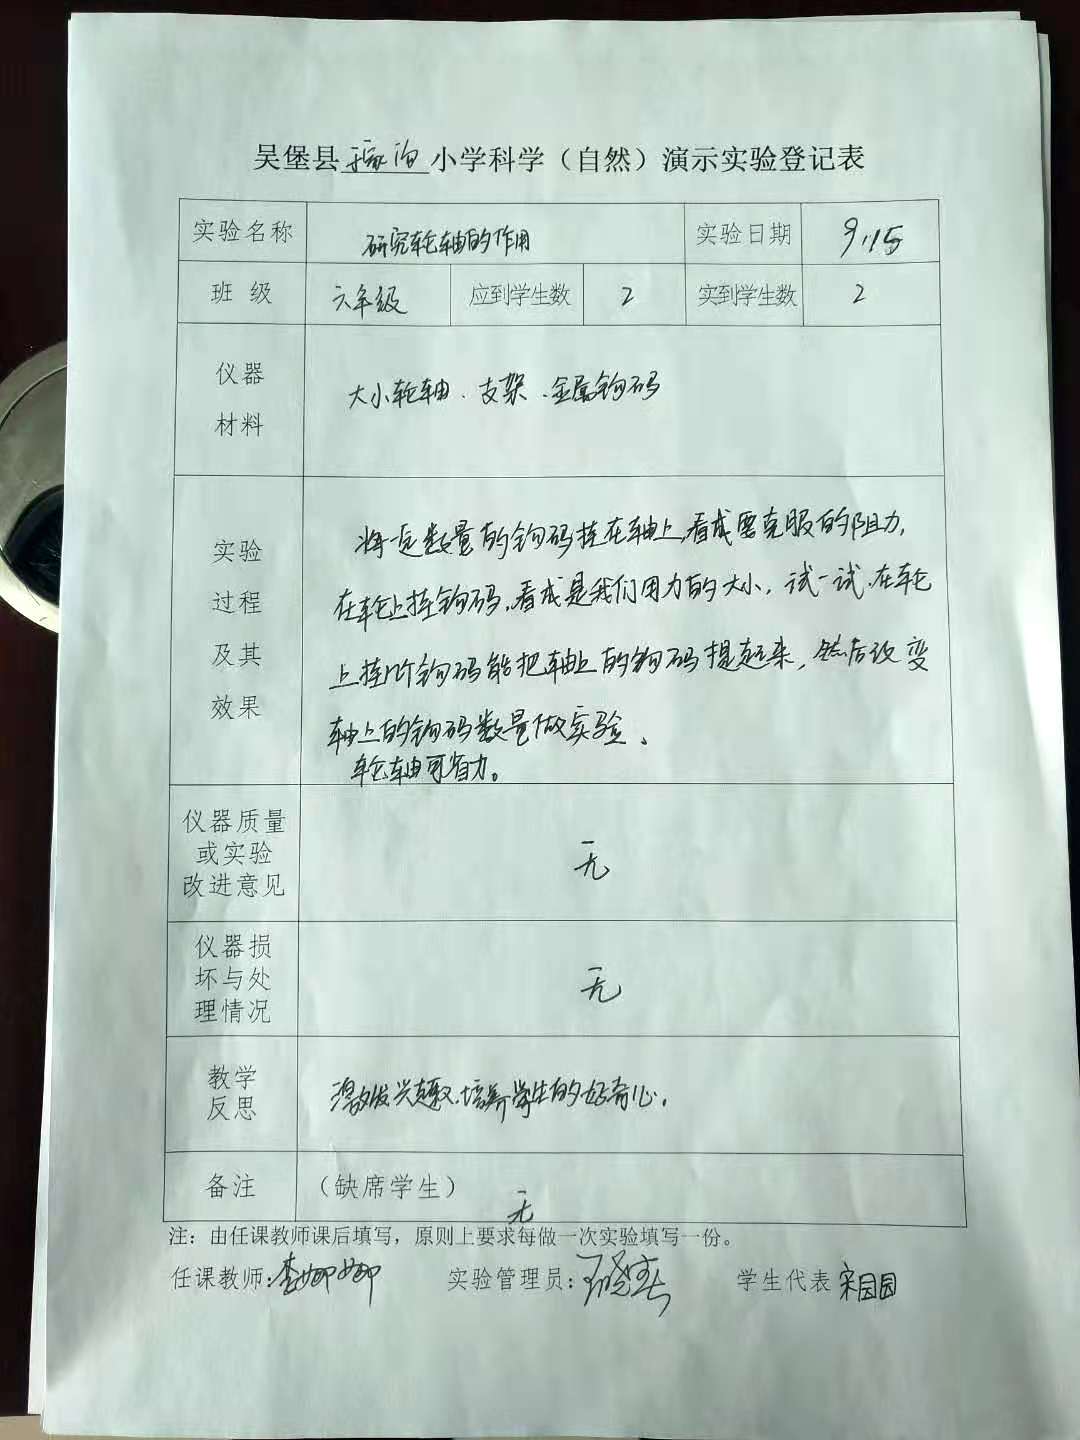 吴堡县 小学科学（自然）演示实验登记表
实验名称 研究轮轴的作用 实验日期 9.15
班 级 六年级 应到学生数 2 实到学生数 2
仪器
材料
大小轮轴、支架、金属钩码
实验
过程
及其
效果
将一定数量的钩码挂在轴上,看成要克服的阻力,
在轮上挂钩码,看成是我们用力的大小。试一试,在轮
上挂几个钩码能把轴上的钩码提起来,然后改变
轴上的钩码数量做实验、
轮轴可省力。
仪器质量
或实验
改进意见
无
仪器损
坏与处
理情况
无
教学
反思
激发兴趣,培养学生的好奇心。
备注 （缺席学生）
无
注：由任课教师课后填写，原则上要求每做一次实验填写一份。
任课教师:李娜娜 实验管理员: 学生代表 宋园园